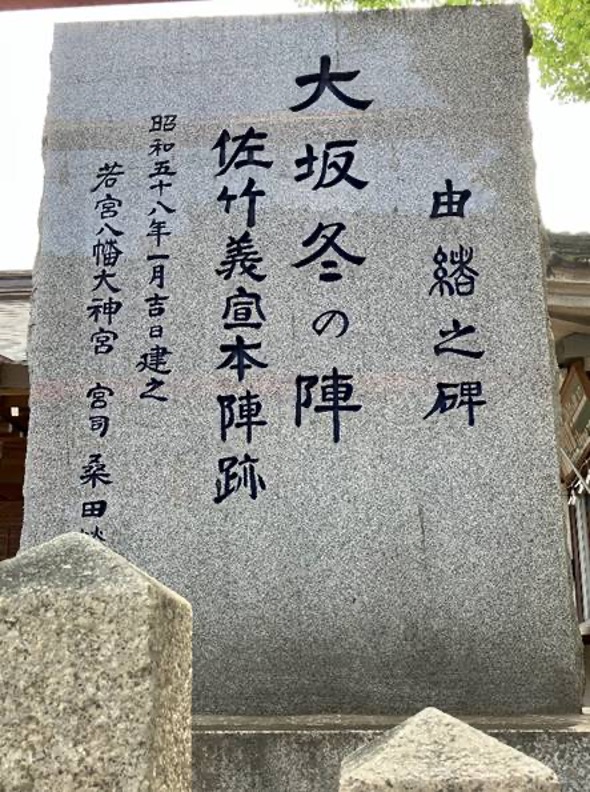 由緒之碑
大坂冬の陣
佐竹義宣本陣跡
昭和五十八年一月吉日建之
若宮八幡大神宮 宮司 桑田